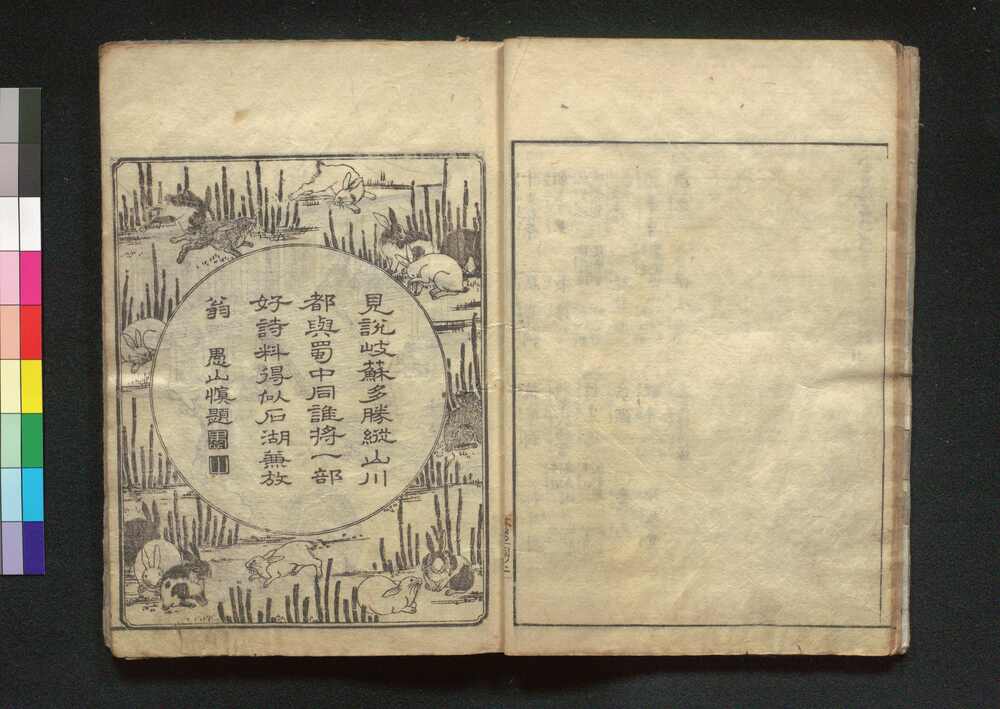 見說岐蘇多勝縱山川
都與蜀中同誰將一部
好詩料得似石湖兼放
翁　愚山慎題